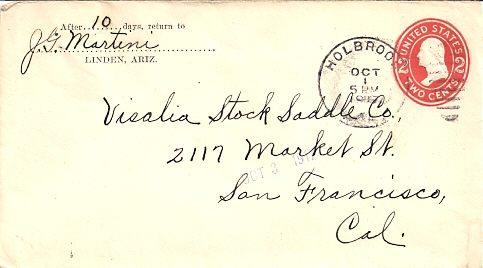 After 10 days, return to
J. G. Martini
LINDEN, ARIZ.
HOLBROOK
OCT
1
5 PM
UNITED STATES
TWO CENTS
Visalia Stock Saddle Co.,
2117 Market St.
OCT 3
San Francisco,
Cal.